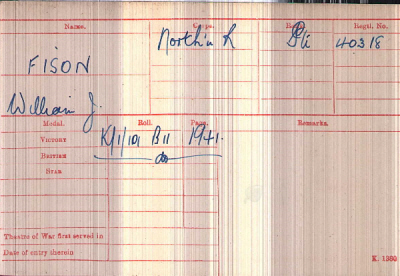 Name. Corps. Rank. Regtl. No.
FISON North'n R Pte 40318
William J.
Medal. Roll. Page. Remarks.
Victory K/1/101 B11 1941.
British do
Star
Theatre of War first served in
Date of entry therein
K. 1380